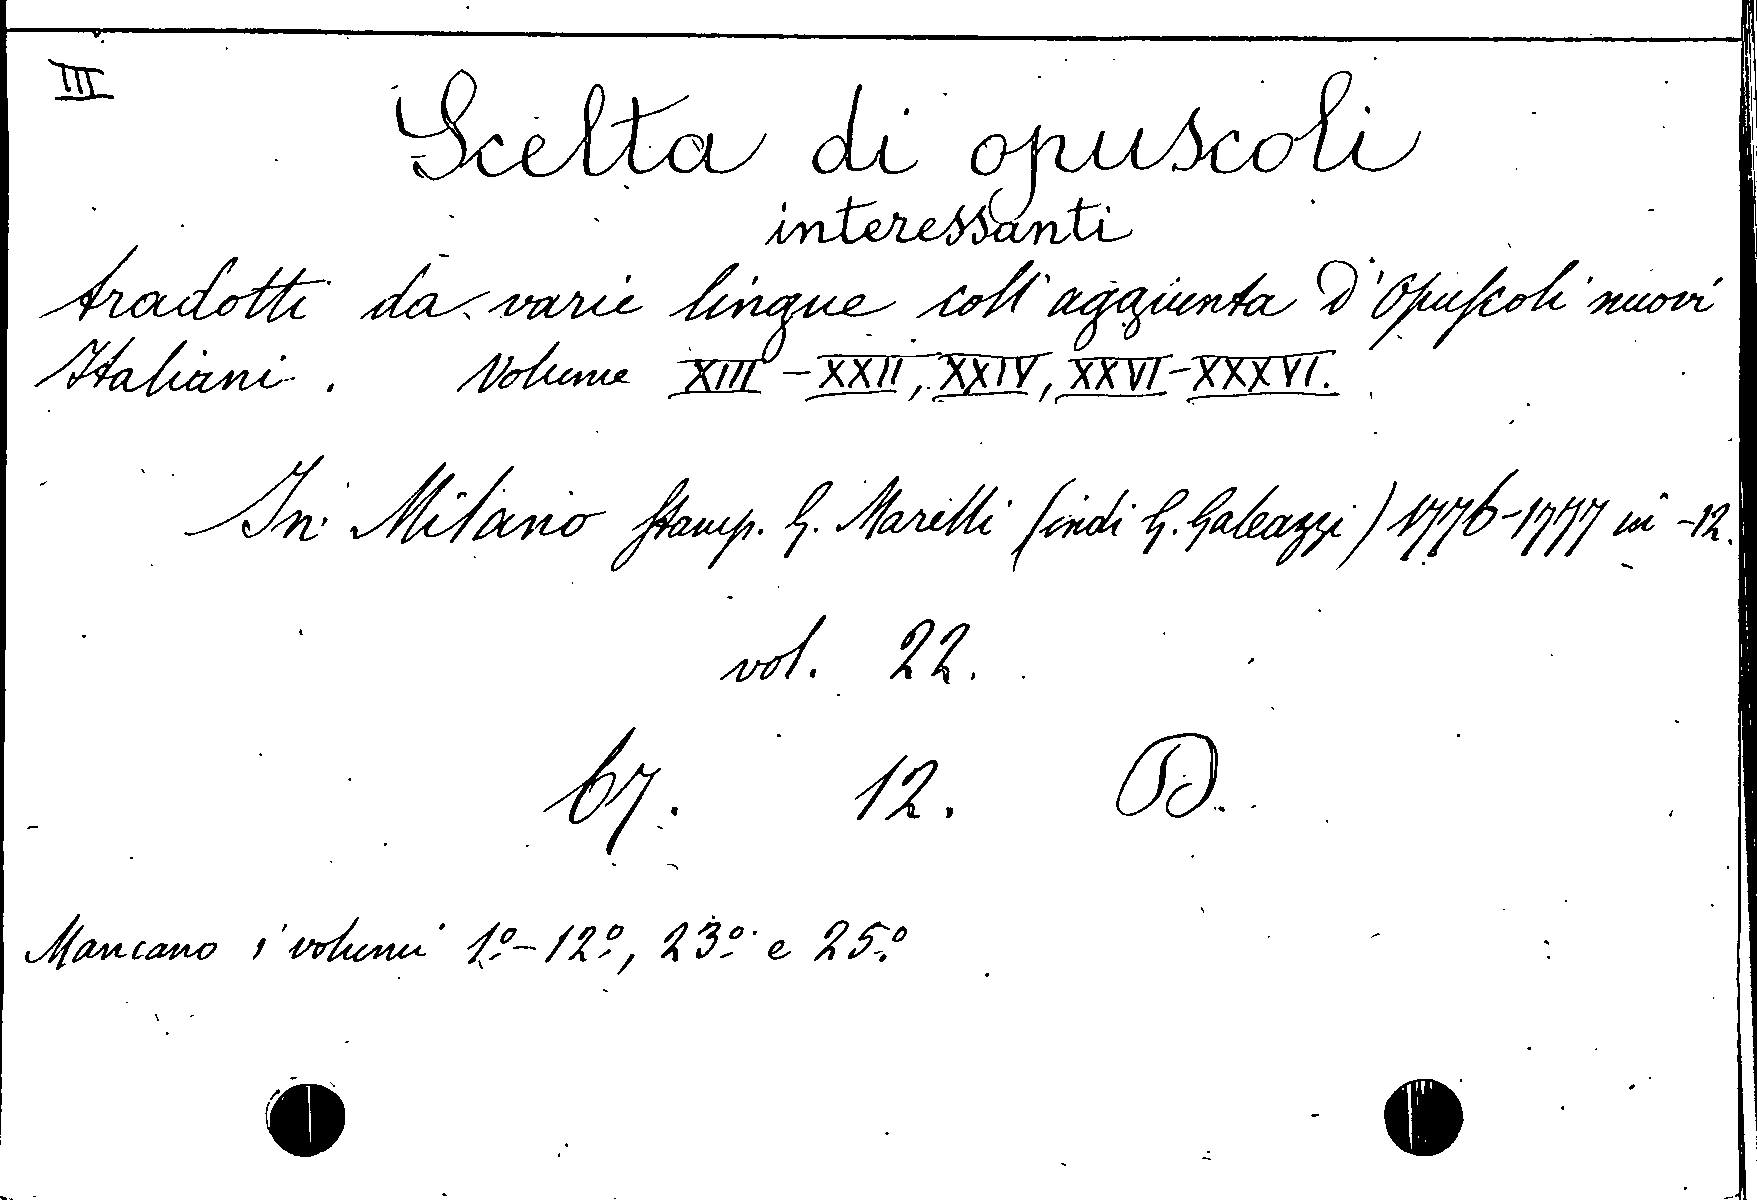 III
Scelta di opuscoli
interessanti
tradotti da varie lingue coll'aggiunta D'Opuscoli nuovi
Italiani. Volume XIII - XXII, XXIV, XXVI-XXXVI.
In Milano Stamp. G. Marelli (indi G. Galeazzi) 1776-1777 in -12.
vol. 22.
67. 12. D.
Mancano i volumi 1º-12º, 23º e 25º